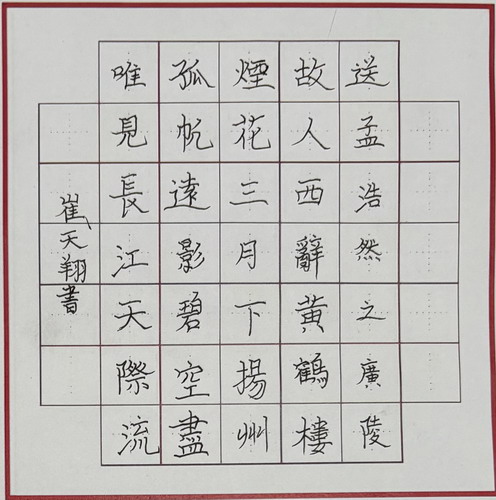 送孟浩然之廣陵
故人西辭黃鶴樓
煙花三月下揚州
孤帆遠影碧空盡
唯見長江天際流
崔天翔書